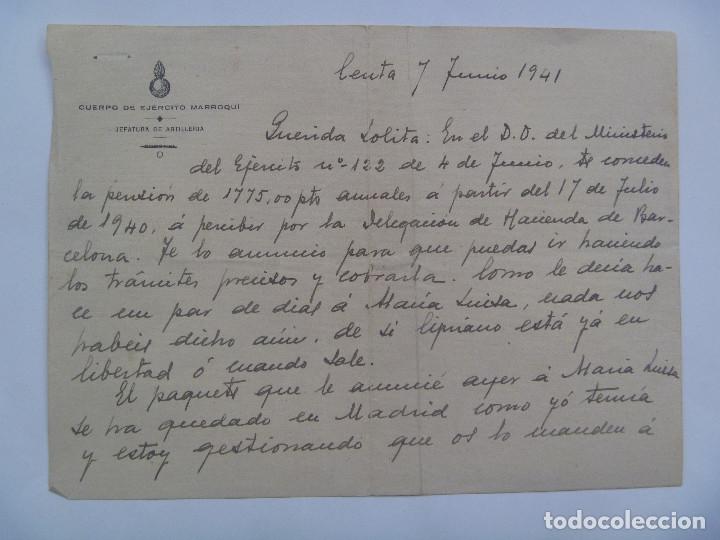 Ceuta 7 Junio 1941
CUERPO DE EJÉRCITO MARROQUÍ
JEFATURA DE ARTILLERIA
Querida Lolita: En el D.O. del Ministerio
del Ejército nº-122 de 4 de Junio, te conceden
la pensión de 1775,00 pts anuales á partir del 17 de Julio
de 1940, á percibir por la Delegación de Hacienda de Bar-
celona. Te lo anuncio para que puedas ir haciendo
los trámites precisos y cobrarla. Como le decia ha-
ce un par de dias á María Luisa, nada nos
habeis dicho aún, de si Cipriano está yá en
libertad ó cuando sale.
El paquete que le anuncié ayer á María Luisa
se ha quedado en Madrid como yó temia
y estoy gestionando que os lo manden á
todocoleccion.net